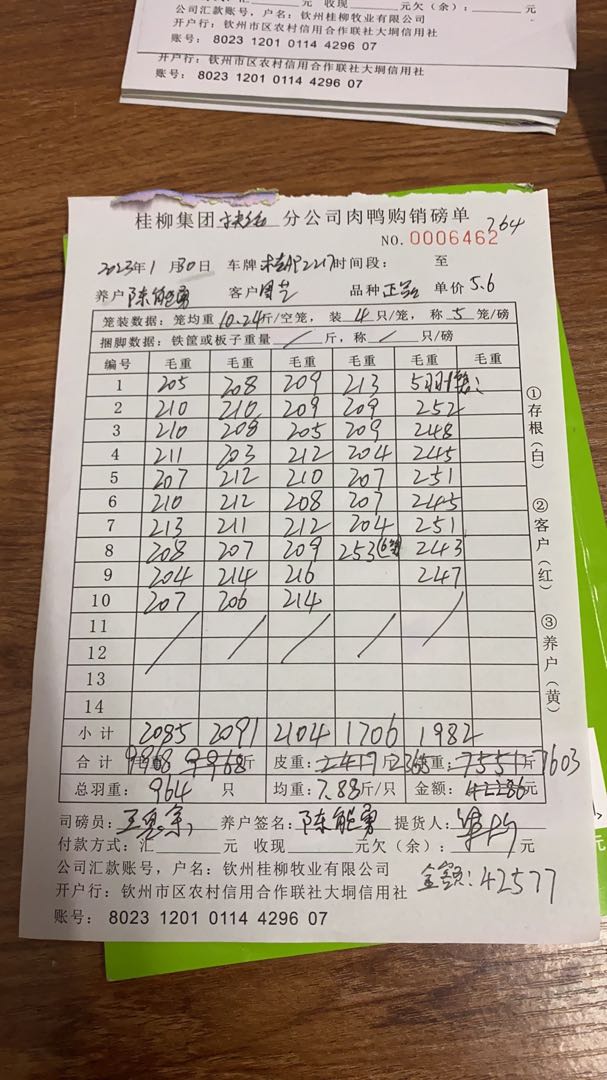 公司汇款账号，户名：钦州桂柳牧业有限公司
开户行：钦州市区农村信用合作联社大垌信用社
账号：8023 1201 0114 4296 07
开户行：钦州市区农村信用合作联社大垌信用社
账号：8023 1201 0114 4296 07
桂柳集团 分公司肉鸭购销磅单
NO. 0006462 764
2023年1月30日 车牌 2217 时间段： 至
养户 陈能勇 客户 品种 单价 5.6
笼装数据：笼均重 10.24 斤/空笼，装 4 只/笼，称 5 笼/磅
捆脚数据：铁筐或板子重量 / 斤，称 / 只/磅
编号 毛重 毛重 毛重 毛重 毛重 毛重
1 205 208 209 213 5羽1笼
2 210 210 209 209 252
3 210 208 205 209 248
4 211 203 212 204 245
5 207 212 210 207 251
6 210 212 208 207 245
7 213 211 212 204 251
8 208 207 209 253(6笼) 243
9 204 214 216 247
10 207 206 214
11
12
13
14
小计 2085 2091 2104 1706 1982
合计 9968 9968 斤 皮重： 2417 斤 2365 重： 7551 斤 7603
总羽重： 964 只 均重： 7.88 斤/只 金额： 42286 元
司磅员： 养户签名：陈能勇 提货人：
付款方式：汇 元 收现 元欠（余）： 元
公司汇款账号，户名：钦州桂柳牧业有限公司
金额：42577
开户行：钦州市区农村信用合作联社大垌信用社
账号：8023 1201 0114 4296 07
①存根（白）
②客户（红）
③养户（黄）